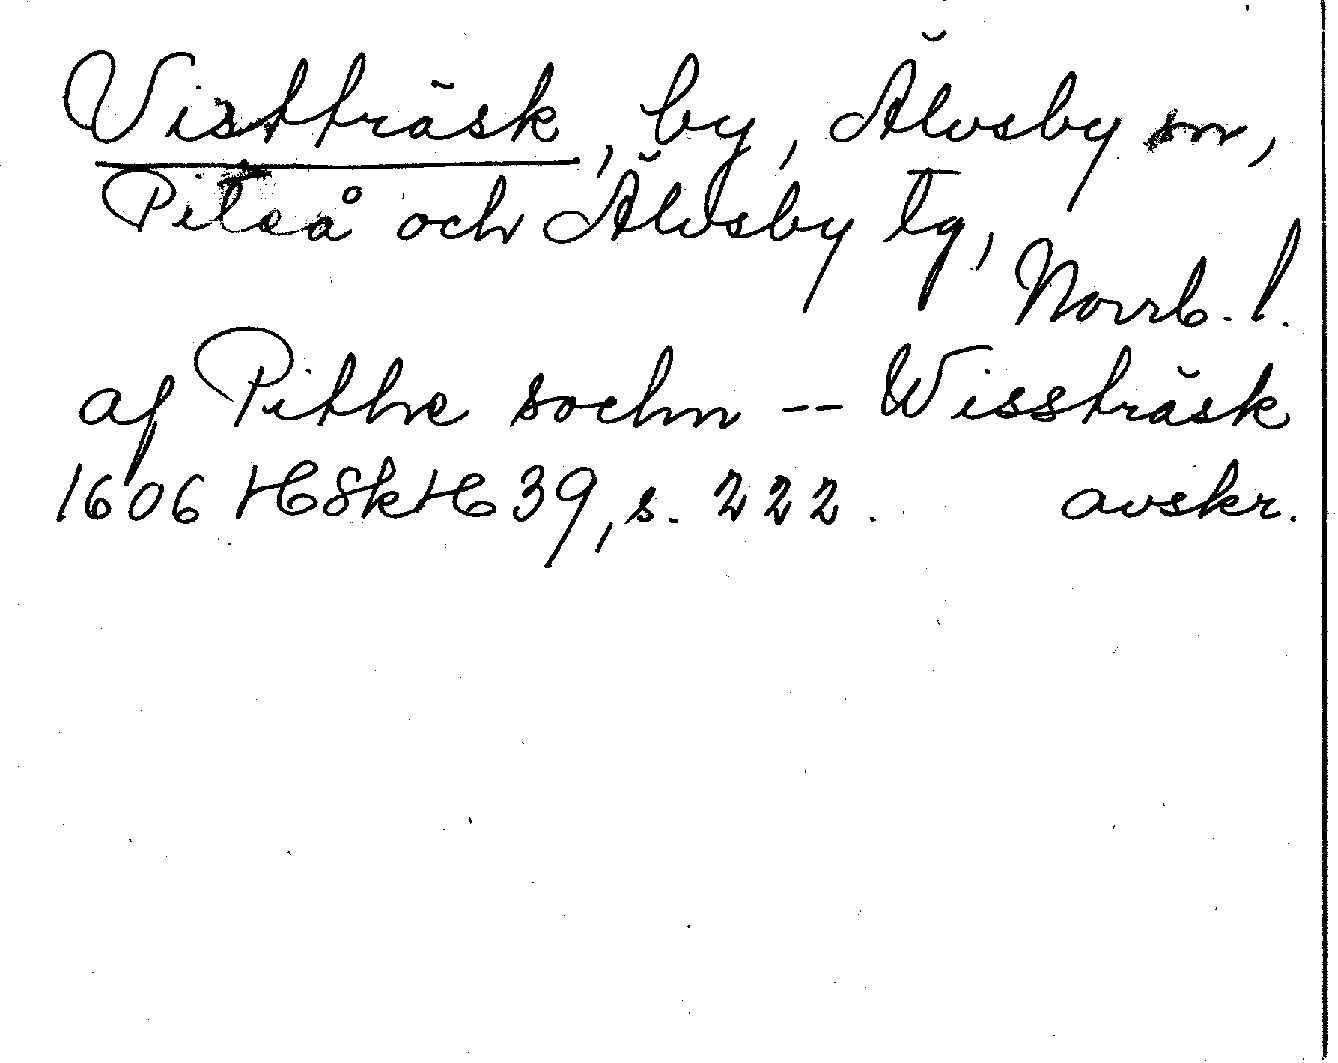 Vistträsk, by, Älvsby sn,
Piteå och Älvsby tg,
Norrb. l.
af Pithe sochn -- Wissträsk
1606 HSkH 39, s. 222. avskr.